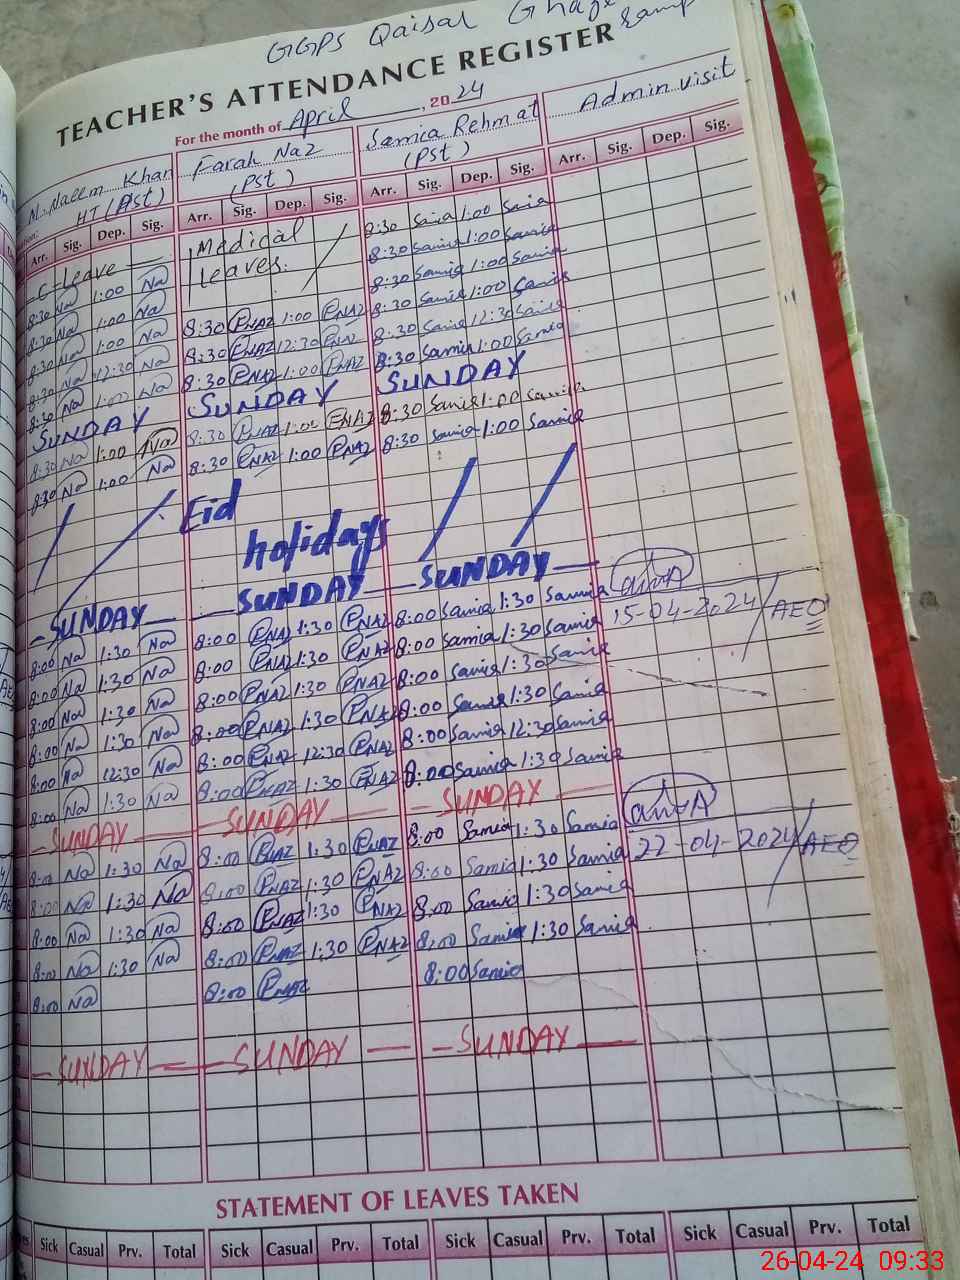 GGPS Qaisar
TEACHER'S ATTENDANCE REGISTER
For the month of April, 2024
M. Naeem Khan Farah Naz Samia Rehmat Admin visit
HT (PST) (PST) (PST)
Arr. Sig. Dep. Sig. Arr. Sig. Dep. Sig. Arr. Sig. Dep. Sig. Arr. Sig. Dep. Sig.
C Leave Medical 8:30 Samia 1:00 Samia
8:30 Na 1:00 Na Leaves. 8:30 Samia 1:00 Samia
8:30 Na 1:00 Na 8:30 Samia 1:00 Samia
8:30 Na 1:00 Na 8:30 FNAZ 1:00 FNAZ 8:30 Samia 1:00 Samia
8:30 Na 12:30 Na 8:30 FNAZ 12:30 FNAZ 8:30 Samia 12:30 Samia
8:30 Na 1:00 Na 8:30 FNAZ 1:00 FNAZ 8:30 Samia 1:00 Samia
SUNDAY SUNDAY SUNDAY
8:30 Na 1:00 Na 8:30 FNAZ 1:00 FNAZ 8:30 Samia 1:00 Samia
8:30 Na 1:00 Na 8:30 FNAZ 1:00 FNAZ 8:30 Samia 1:00 Samia
Eid
holidays
SUNDAY SUNDAY SUNDAY
8:00 Na 1:30 Na 8:00 FNAZ 1:30 FNAZ 8:00 Samia 1:30 Samia 15-04-2024 / AEO
8:00 Na 1:30 Na 8:00 FNAZ 1:30 FNAZ 8:00 Samia 1:30 Samia
8:00 Na 1:30 Na 8:00 FNAZ 1:30 FNAZ 8:00 Samia 1:30 Samia
8:00 Na 1:30 Na 8:00 FNAZ 1:30 FNAZ 8:00 Samia 1:30 Samia
8:00 Na 12:30 Na 8:00 FNAZ 12:30 FNAZ 8:00 Samia 12:30 Samia
8:00 Na 1:30 Na 8:00 FNAZ 1:30 FNAZ 8:00 Samia 1:30 Samia
SUNDAY SUNDAY SUNDAY
8:00 Na 1:30 Na 8:00 FNAZ 1:30 FNAZ 8:00 Samia 1:30 Samia 22-04-2024 / AEO
8:00 Na 1:30 Na 8:00 FNAZ 1:30 FNAZ 8:00 Samia 1:30 Samia
8:00 Na 1:30 Na 8:00 FNAZ 1:30 FNAZ 8:00 Samia 1:30 Samia
8:00 Na 1:30 Na 8:00 FNAZ 1:30 FNAZ 8:00 Samia 1:30 Samia
8:00 Na 8:00 FNAZ 8:00 Samia
SUNDAY SUNDAY SUNDAY
STATEMENT OF LEAVES TAKEN
Sick Casual Prv. Total Sick Casual Prv. Total Sick Casual Prv. Total Sick Casual Prv. Total
26-04-24 09:33